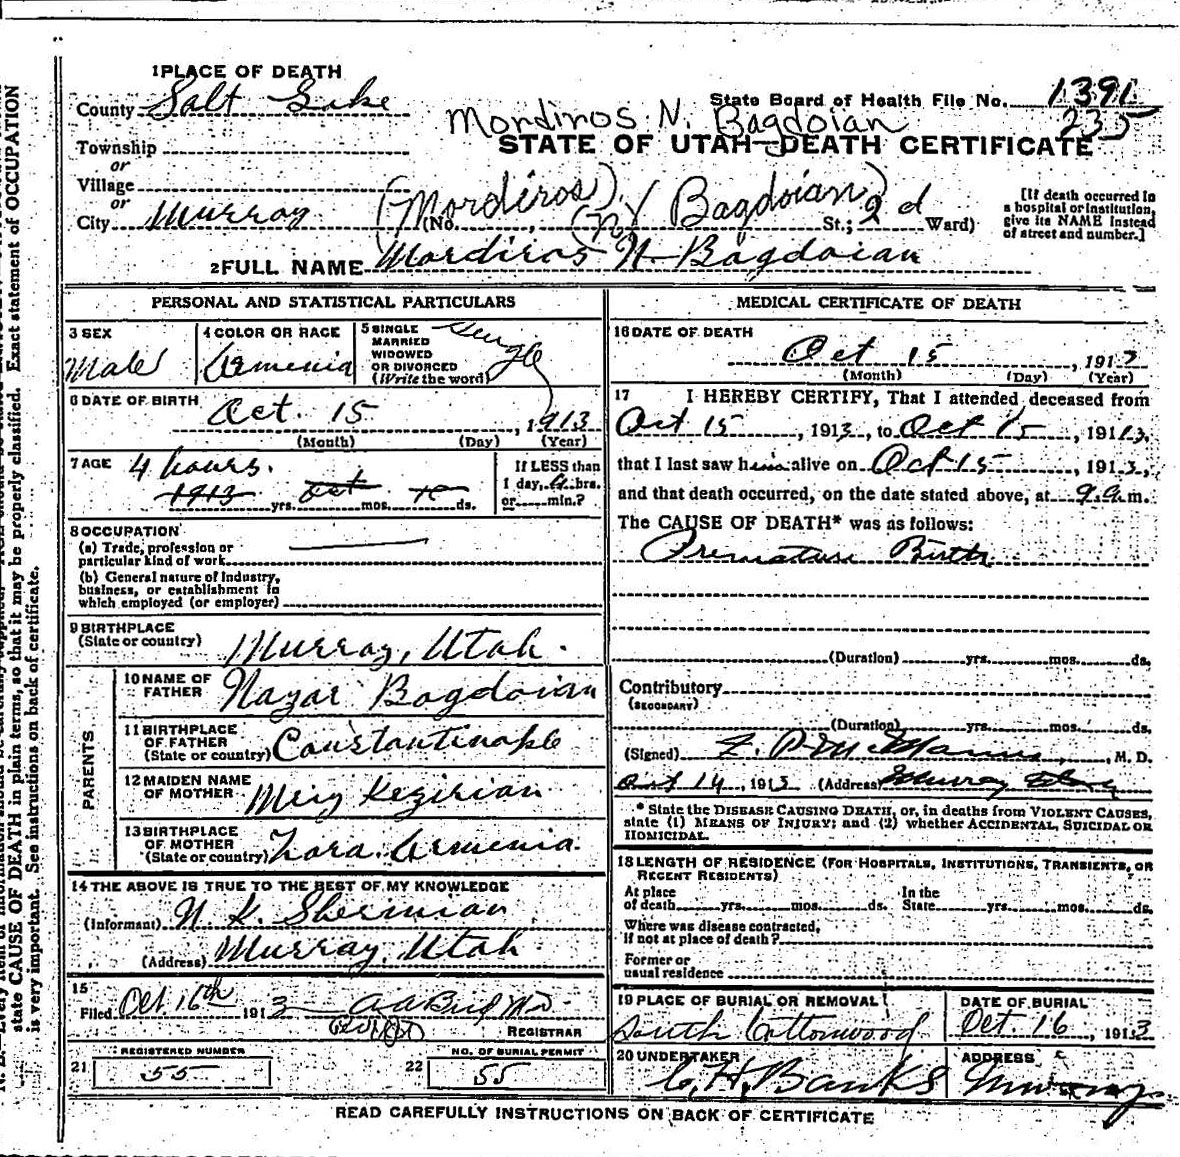 1 PLACE OF DEATH
County Salt Lake
State Board of Health File No. 1391
235
Mordiros N. Bagdoian
STATE OF UTAH—DEATH CERTIFICATE
Township
or
Village
or
City Murray (No. , St.; 2d Ward)
(Mordiros) (N) Bagdoian)
[If death occurred in
a hospital or institution,
give its NAME instead
of street and number.]
2 FULL NAME Mordiros N. Bagdoian
PERSONAL AND STATISTICAL PARTICULARS
3 SEX
Male
4 COLOR OR RACE
Armenia
5 SINGLE
MARRIED
WIDOWED
OR DIVORCED
(Write the word)
Single
6 DATE OF BIRTH
Oct. 15, 1913
(Month) (Day) (Year)
7 AGE 4 hours.
1913 yrs. Oct mos. ds.
If LESS than
1 day, 4 hrs.
or min.?
8 OCCUPATION
(a) Trade, profession or
particular kind of work
(b) General nature of Industry,
business, or establishment in
which employed (or employer)
9 BIRTHPLACE
(State or country) Murray, Utah.
PARENTS
10 NAME OF
FATHER Nazar Bagdoian
11 BIRTHPLACE
OF FATHER
(State or country) Constantinople
12 MAIDEN NAME
OF MOTHER Kezirian
13 BIRTHPLACE
OF MOTHER
(State or country) Armenia.
14 THE ABOVE IS TRUE TO THE BEST OF MY KNOWLEDGE
(Informant) N. K. Sherinian
(Address) Murray, Utah
15
Filed Oct. 16th 1913
REGISTRAR
REGISTERED NUMBER
21 55
NO. OF BURIAL PERMIT
22 55
MEDICAL CERTIFICATE OF DEATH
16 DATE OF DEATH
Oct 15, 1913
(Month) (Day) (Year)
17 I HEREBY CERTIFY, That I attended deceased from
Oct 15, 1913, to Oct 15, 1913,
that I last saw him alive on Oct 15, 1913,
and that death occurred, on the date stated above, at 9 a.m.
The CAUSE OF DEATH* was as follows:
Premature Birth
(Duration) yrs. mos. ds.
Contributory
(SECONDARY)
(Duration) yrs. mos. ds.
(Signed) , M. D.
Oct 14, 1913 (Address) Murray Utah
* State the DISEASE CAUSING DEATH, or, in deaths from VIOLENT CAUSES,
state (1) MEANS OF INJURY; and (2) whether ACCIDENTAL, SUICIDAL OR
HOMICIDAL.
18 LENGTH OF RESIDENCE (FOR HOSPITALS, INSTITUTIONS, TRANSIENTS, OR
RECENT RESIDENTS)
At place
of death yrs. mos. ds.
In the
State yrs. mos. ds.
Where was disease contracted,
if not at place of death?
Former or
usual residence
19 PLACE OF BURIAL OR REMOVAL
South Cottonwood
DATE OF BURIAL
Oct. 16, 1913
20 UNDERTAKER
C. H. Banks
ADDRESS
Murray
READ CAREFULLY INSTRUCTIONS ON BACK OF CERTIFICATE
state CAUSE OF DEATH in plain terms, so that it may be properly classified. Exact statement of OCCUPATION
is very important. See instructions on back of certificate.